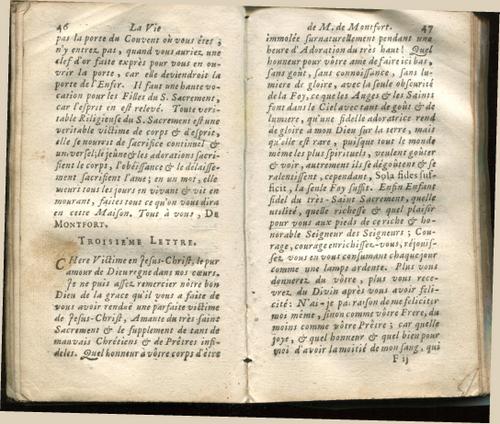 46 La Vie
pas la porte du Couvent où vous êtes ;
n'y entrez pas, quand vous auriez une
clef d'or faite exprès pour vous en ou-
vrir la porte, car elle deviendroit la
porte de l'Enfer. Il faut une haute vo-
cation pour les Filles du S. Sacrement,
car l'esprit en est relevé. Toute veri-
table Réligieuse du S. Sacrement est une
veritable victime de corps & d'esprit,
elle se nourrit de sacrifice continuel &
universel; le jeûne & les adorations sacri-
fient le corps, l'obéissance & le délaisse-
ment sacrifient l'ame; en un mot, elle
meurt tous les jours en vivant & vit en
mourant, faites tout ce qu'on vous dira
en cette Maison. Tout à vous, DE
MONTFORT.
TROISIÈME LETTRE.
CHere Victime en Jesus-Christ, le pur
amour de Dieu regne dans nos cœurs.
Je ne puis assez remercier nôtre bon
Dieu de la grace qu'il vous a faite de
vous avoir rendue une parfaite victime
de Jesus-Christ, Amante du très-saint
Sacrement & le supplement de tant de
mauvais Chrétiens & de Prêtres infi-
deles. Quel honneur à vôtre corps d'être
de M. de Montfort. 47
immolée surnaturellement pendant une
heure d'Adoration du très haut! Quel
honneur pour vôtre ame de faire ici bas,
sans goût, sans connoissance, sans lu-
miere de gloire, avec la seule obscurité
de la Foy, ce que les Anges & les Saints
font dans le Ciel avec tant de goût & de
lumiere, qu'une fidelle adoratrice rend
de gloire a mon Dieu sur la terre, mais
qu'elle est rare, puisque tout le monde
même les plus spirituels, veulent goûter
& voir, autrement ils se dégoûtent & se
ralentissent, cependant, Sola fides suf-
ficit, la seule Foy suffit. Enfin Enfant
fidel du très-Saint Sacrement, quelle
utilité, quelle richesse & quel plaisir
pour vous aux pieds de ce riche & ho-
norable Seigneur des Seigneurs; Cou-
rage, courage enrichissez-vous, réjouis-
sez vous en vous consumant chaque jour
comme une lampe ardente. Plus vous
donnerez du vôtre, plus vous rece-
vrez du Divin après vous avoir feli-
cité: N'ai-je pas raison de me feliciter
moi même, sinon comme vôtre Frere, du
moins comme vôtre Prêtre; car quelle
joye, & quel honneur & quel bien pour
moi d'avoir la moitié de mon sang, qui
F ij